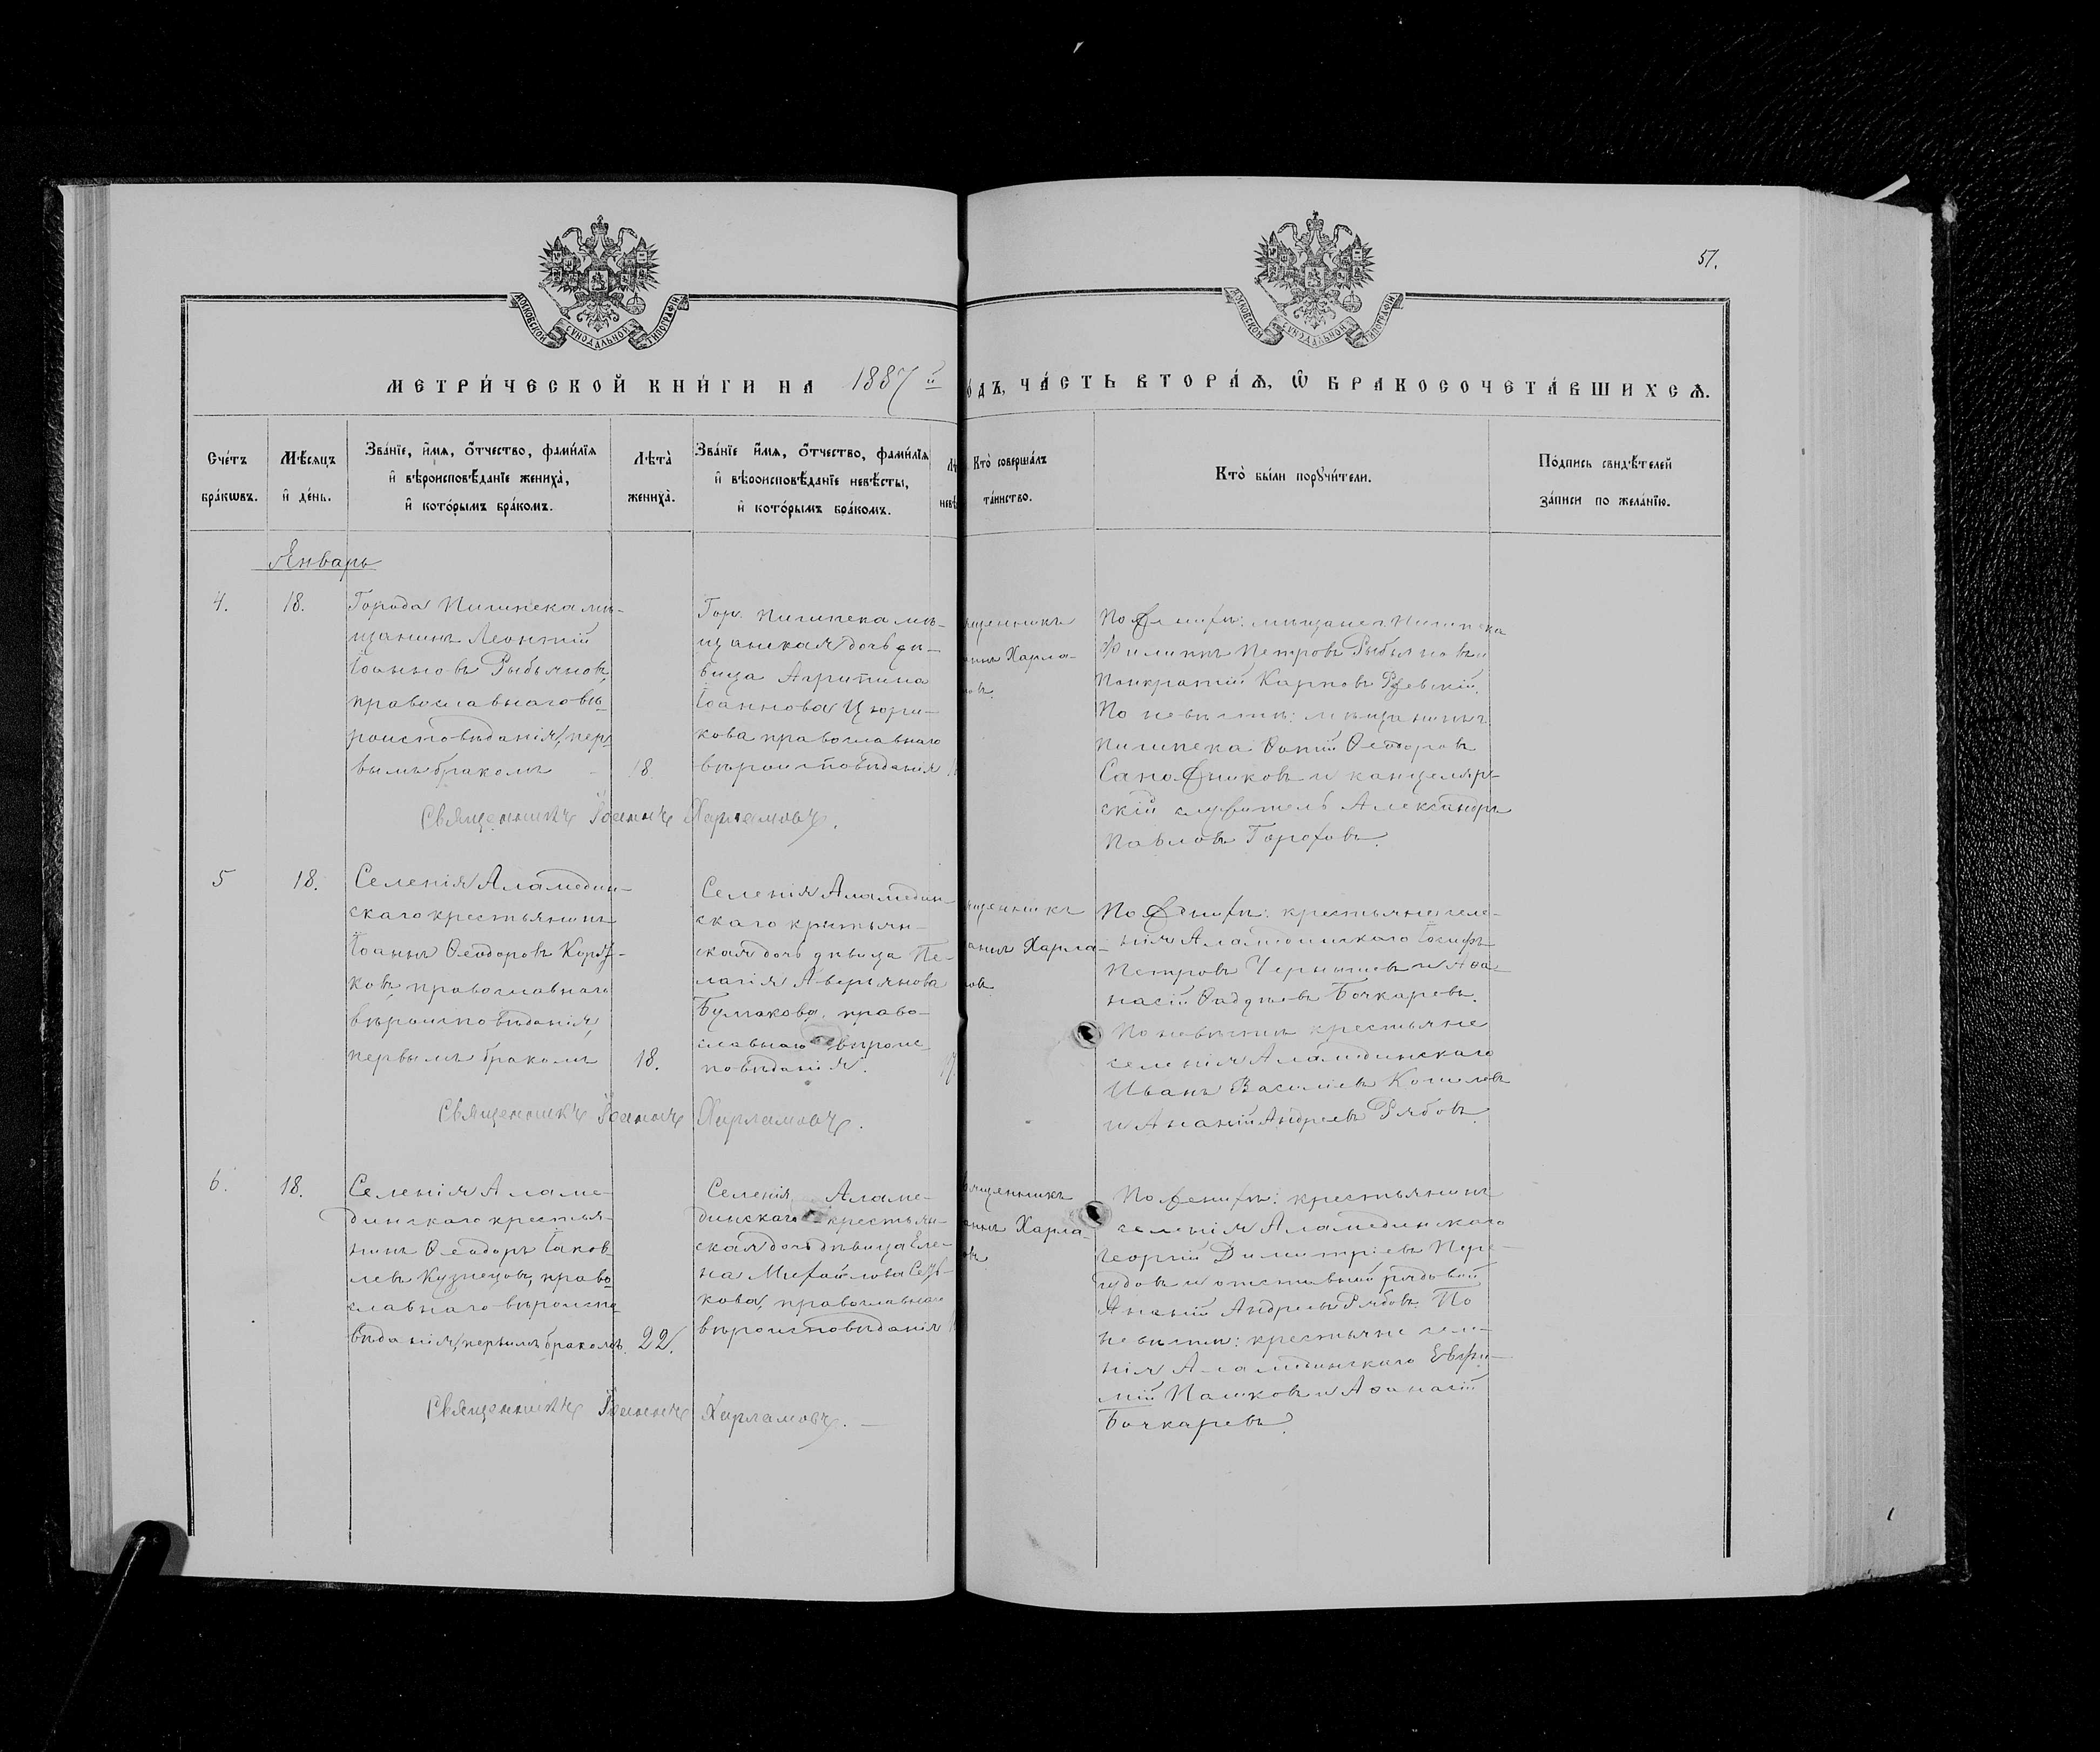 51.
МОСКОВСКОЙ СУНОДАЛЬНОЙ ТИПОГРАФІИ
МОСКОВСКОЙ СУНОДАЛЬНОЙ ТИПОГРАФІИ
МЕТРИ́ЧЕСКОЙ КНИ́ГИ НА 1887 й
о́дъ, ЧА́СТЬ ВТОРА́Ѧ, Ѿ БРАКОСОЧЕТА́ВШИХСѦ.
Сче́тъ бра́кѡвъ.
Мѣ́сѧцъ и҆ де́нь.
Зва́нїе, и҆́мѧ, ѻ҆́тчество, фами́лїѧ
и҆ вѣроисповѣ́данїе жениха̀,
и҆ кото́рымъ бра́комъ.
Лѣта̀ жениха̀.
Зва́нїе и҆́мѧ, ѻ҆́тчество, фами́лїѧ
и҆ вѣроисповѣ́данїе невѣ́сты,
и҆ кото́рымъ бра́комъ.
Кто̀ соверша́лъ
та́инство.
Кто̀ бы́ли порꙋчи́тели.
По́дпись свидѣ́телей
за́писи по жела́нїю.
Январь
4.
18.
Города Пишпека мѣ-
щанинъ Леонтій
Іоанновъ Рыбьяковъ,
православнаго вѣ-
роисповѣданія, пер-
вымъ бракомъ
18
Гор. Пишпека мѣ-
щанская дочь дѣ-
вица Агрипина
Іоаннова Цюри-
кова православнаго
вѣроисповѣданія
ященникъ
аннъ Харла-
овъ.
По женихѣ: мещане г. Пишпека
Филиппъ Петровъ Рыбьяковъ и
Панкратій Карповъ Ржевскій.
По невѣстѣ: мѣщанинъ
Пишпека Фотій Ѳеодоровъ
Сапожниковъ и канцеляр-
скій служитель Александръ
Павловъ Гороховъ.
Священникъ Іоаннъ Харламовъ.
5
18.
Селенія Аламедин-
скаго крестьянинъ
Іоаннъ Ѳеодоровъ
ковъ, православнаго
вѣроисповѣданія,
первымъ бракомъ
18.
Селенія Аламедин-
скаго крестьян-
ская дочь дѣвица Пе-
лагія Аверьянова
Булгакова, право-
славнаго вѣроис-
повѣданія.
ященникъ
аннъ Харла-
овъ
По женихѣ: крестьяне селе-
нія Аламединскаго Іосифъ
Петровъ Чернышевъ и Аѳа-
насій Бочкаревъ.
По невѣстѣ крестьяне
селенія Аламединскаго
Иванъ Василіевъ Кошелевъ
и Ананій Андреевъ Рябовъ.
Священникъ Іоаннъ Харламовъ.
6.
18.
Селенія Аламе-
динскаго крестья-
нинъ Ѳеодоръ Іаков-
левъ Кузнецовъ, право-
славнаго вѣроиспо-
вѣданія, первымъ бракомъ.
22.
Селенія Аламе-
динскаго крестьян-
ская дочь дѣвица Еле-
на Михайлова
кова, православнаго
вѣроисповѣданія
вященникъ
аннъ Харла-
овъ
По женихѣ: крестьянинъ
селенія Аламединскаго
Георгій Димитріевъ
и отставной рядовой
Ананій Андреевъ Рябовъ. По
невѣстѣ: крестьяне селе-
нія Аламединскаго Евфи-
мій Пашковъ и Аѳанасій
Бочкаревъ.
Священникъ Іоаннъ Харламовъ. —